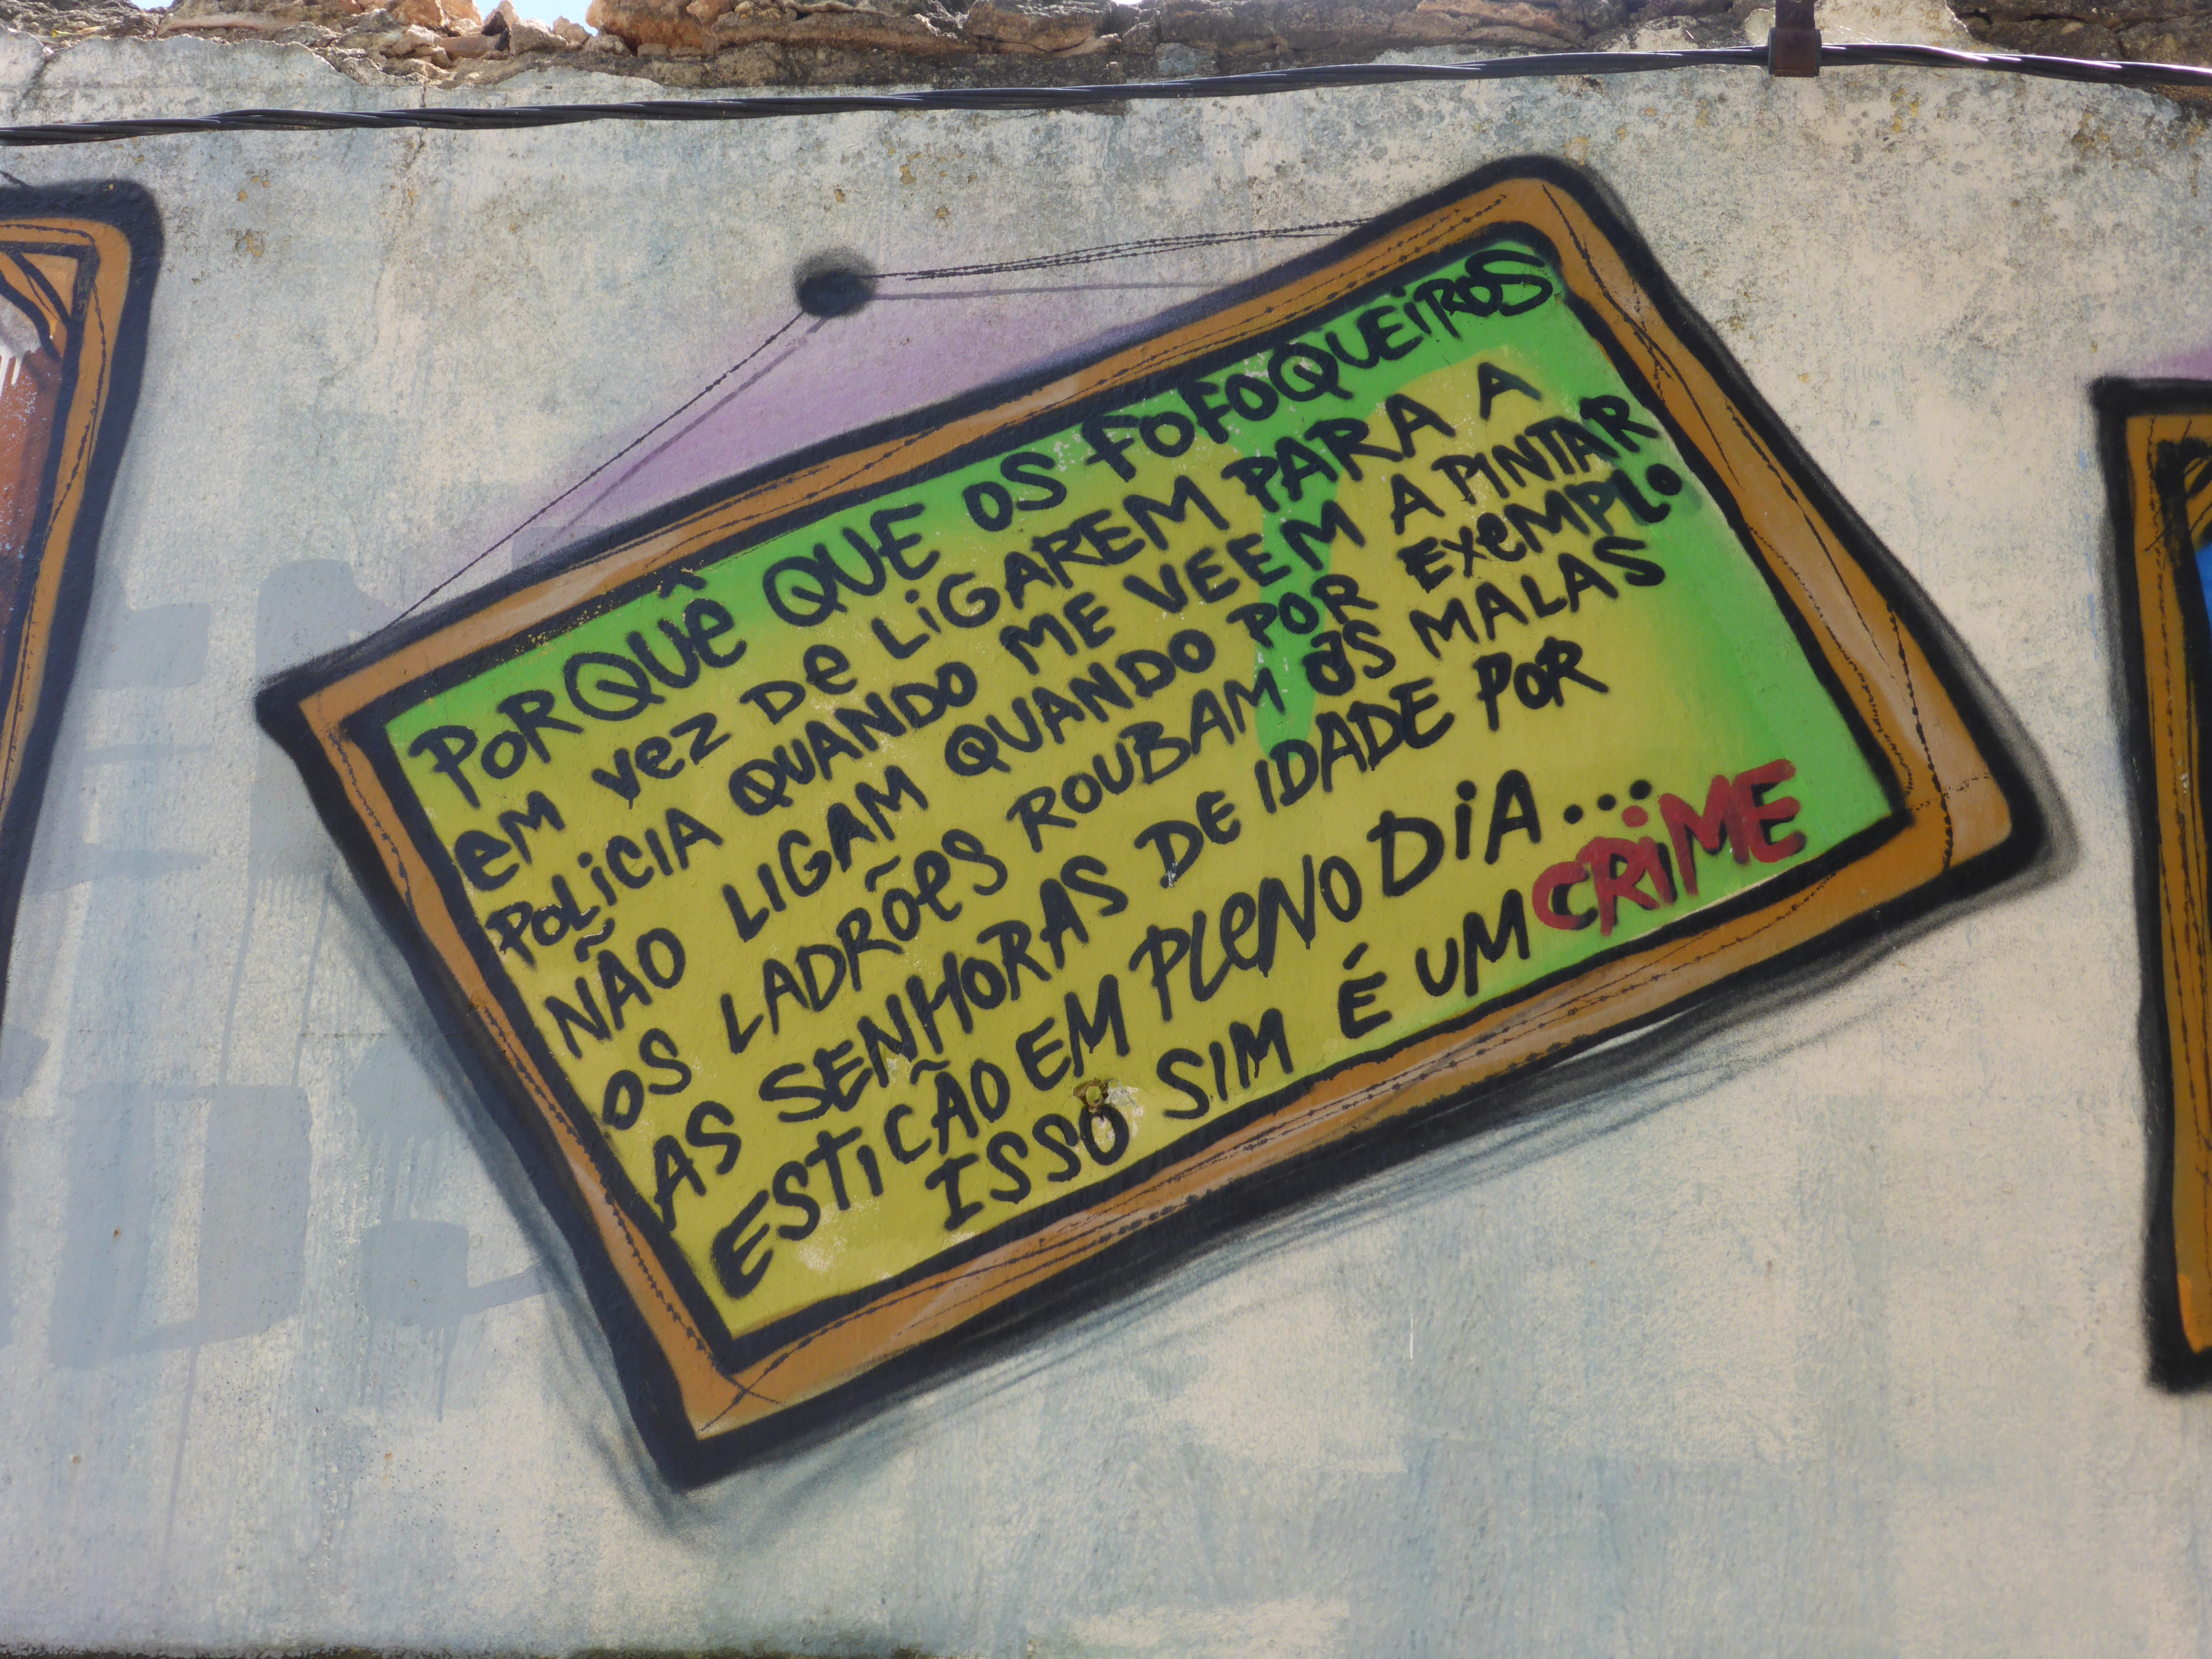 PORQUÊ QUE OS FOFOQUEIROS
EM VEZ DE LIGAREM PARA A
POLICIA QUANDO ME VEEM A PINTAR
NÃO LIGAM QUANDO POR EXEMPLO
OS LADRÕES ROUBAM AS MALAS
AS SENHORAS DE IDADE POR
ESTICÃO EM PLENO DIA...
ISSO SIM É UM CRIME